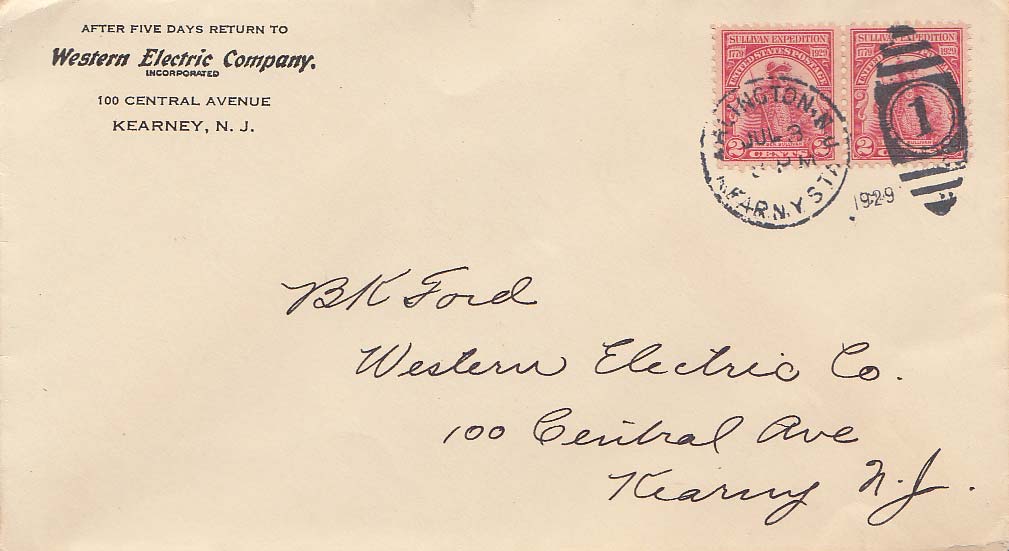 AFTER FIVE DAYS RETURN TO
Western Electric Company.
INCORPORATED
100 CENTRAL AVENUE
KEARNEY, N. J.
SULLIVAN EXPEDITION
1779 1929
UNITED STATES POSTAGE
2 CENTS 2
SULLIVAN EXPEDITION
1779 1929
UNITED STATES
2
ARLINGTON, N.J.
JUL 3
PM
KEARNY STA
1
1929
BK Ford
Western Electric Co.
100 Central Ave
Kearny N.J.